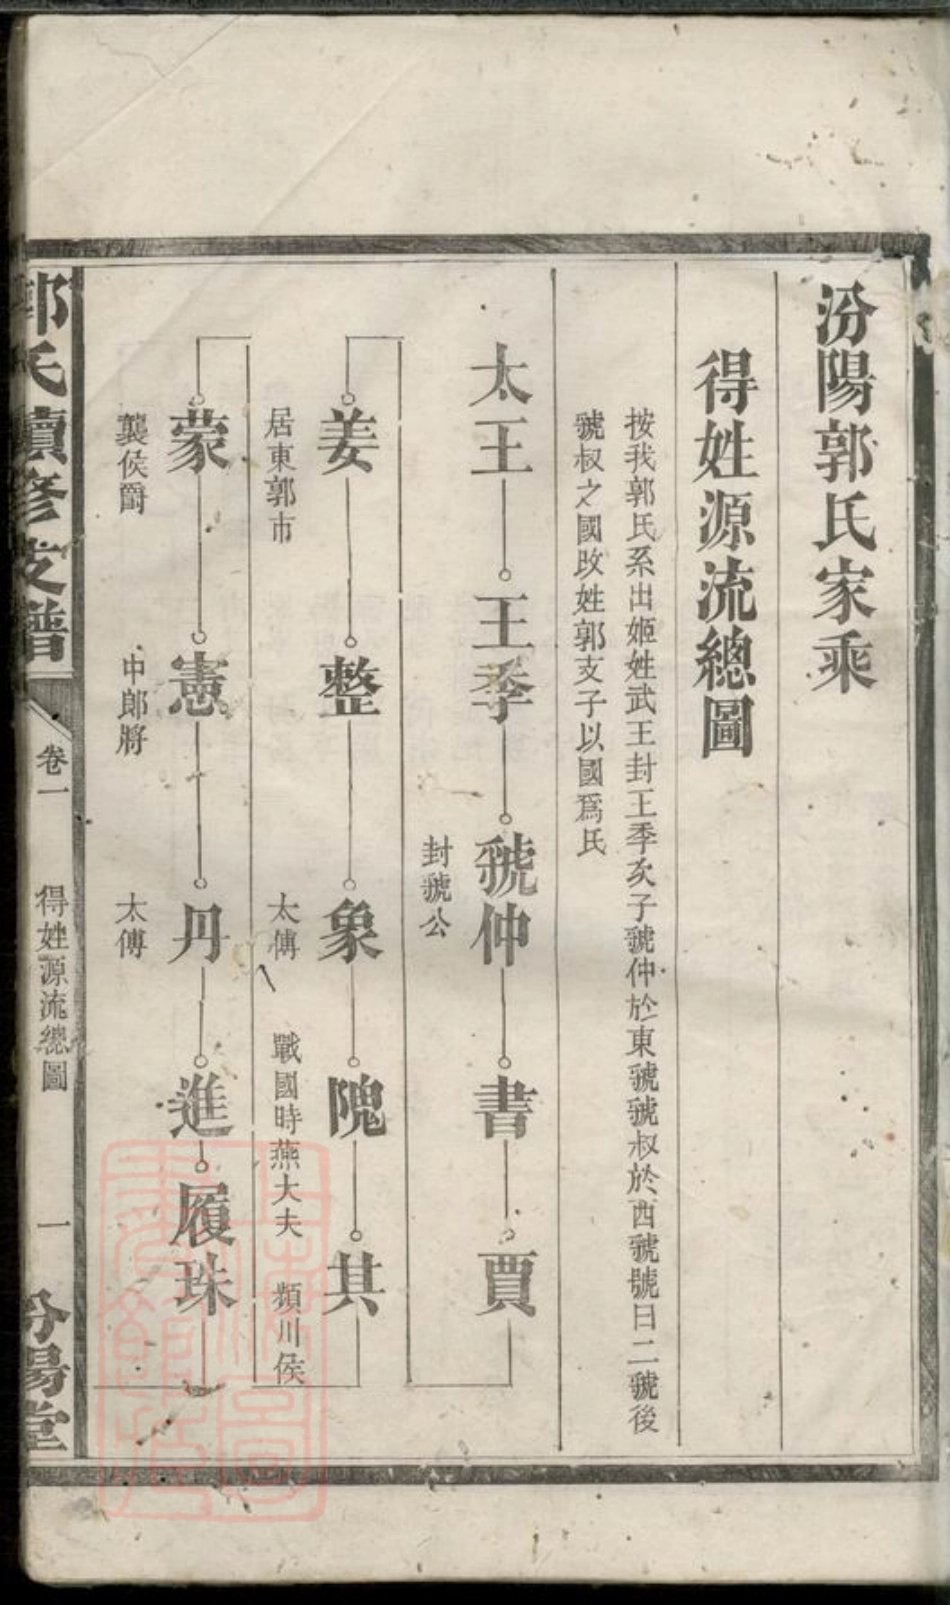 汾陽郭氏家乘
得姓源流總圖
按我郭氏系出姬姓武王封王季次子虢仲於東虢虢叔於西虢號曰二虢後
虢叔之國改姓郭支子以國爲氏
太王 王季 虢仲 書 賈
封虢公
姜 整 象 隗 其
居東郭市 太傅 戰國時燕大夫 頴川侯
蒙 憲 丹 進 履珠
襲侯爵 中郎將 太傅
郭氏續修支譜 卷一 得姓源流總圖 一 汾陽堂